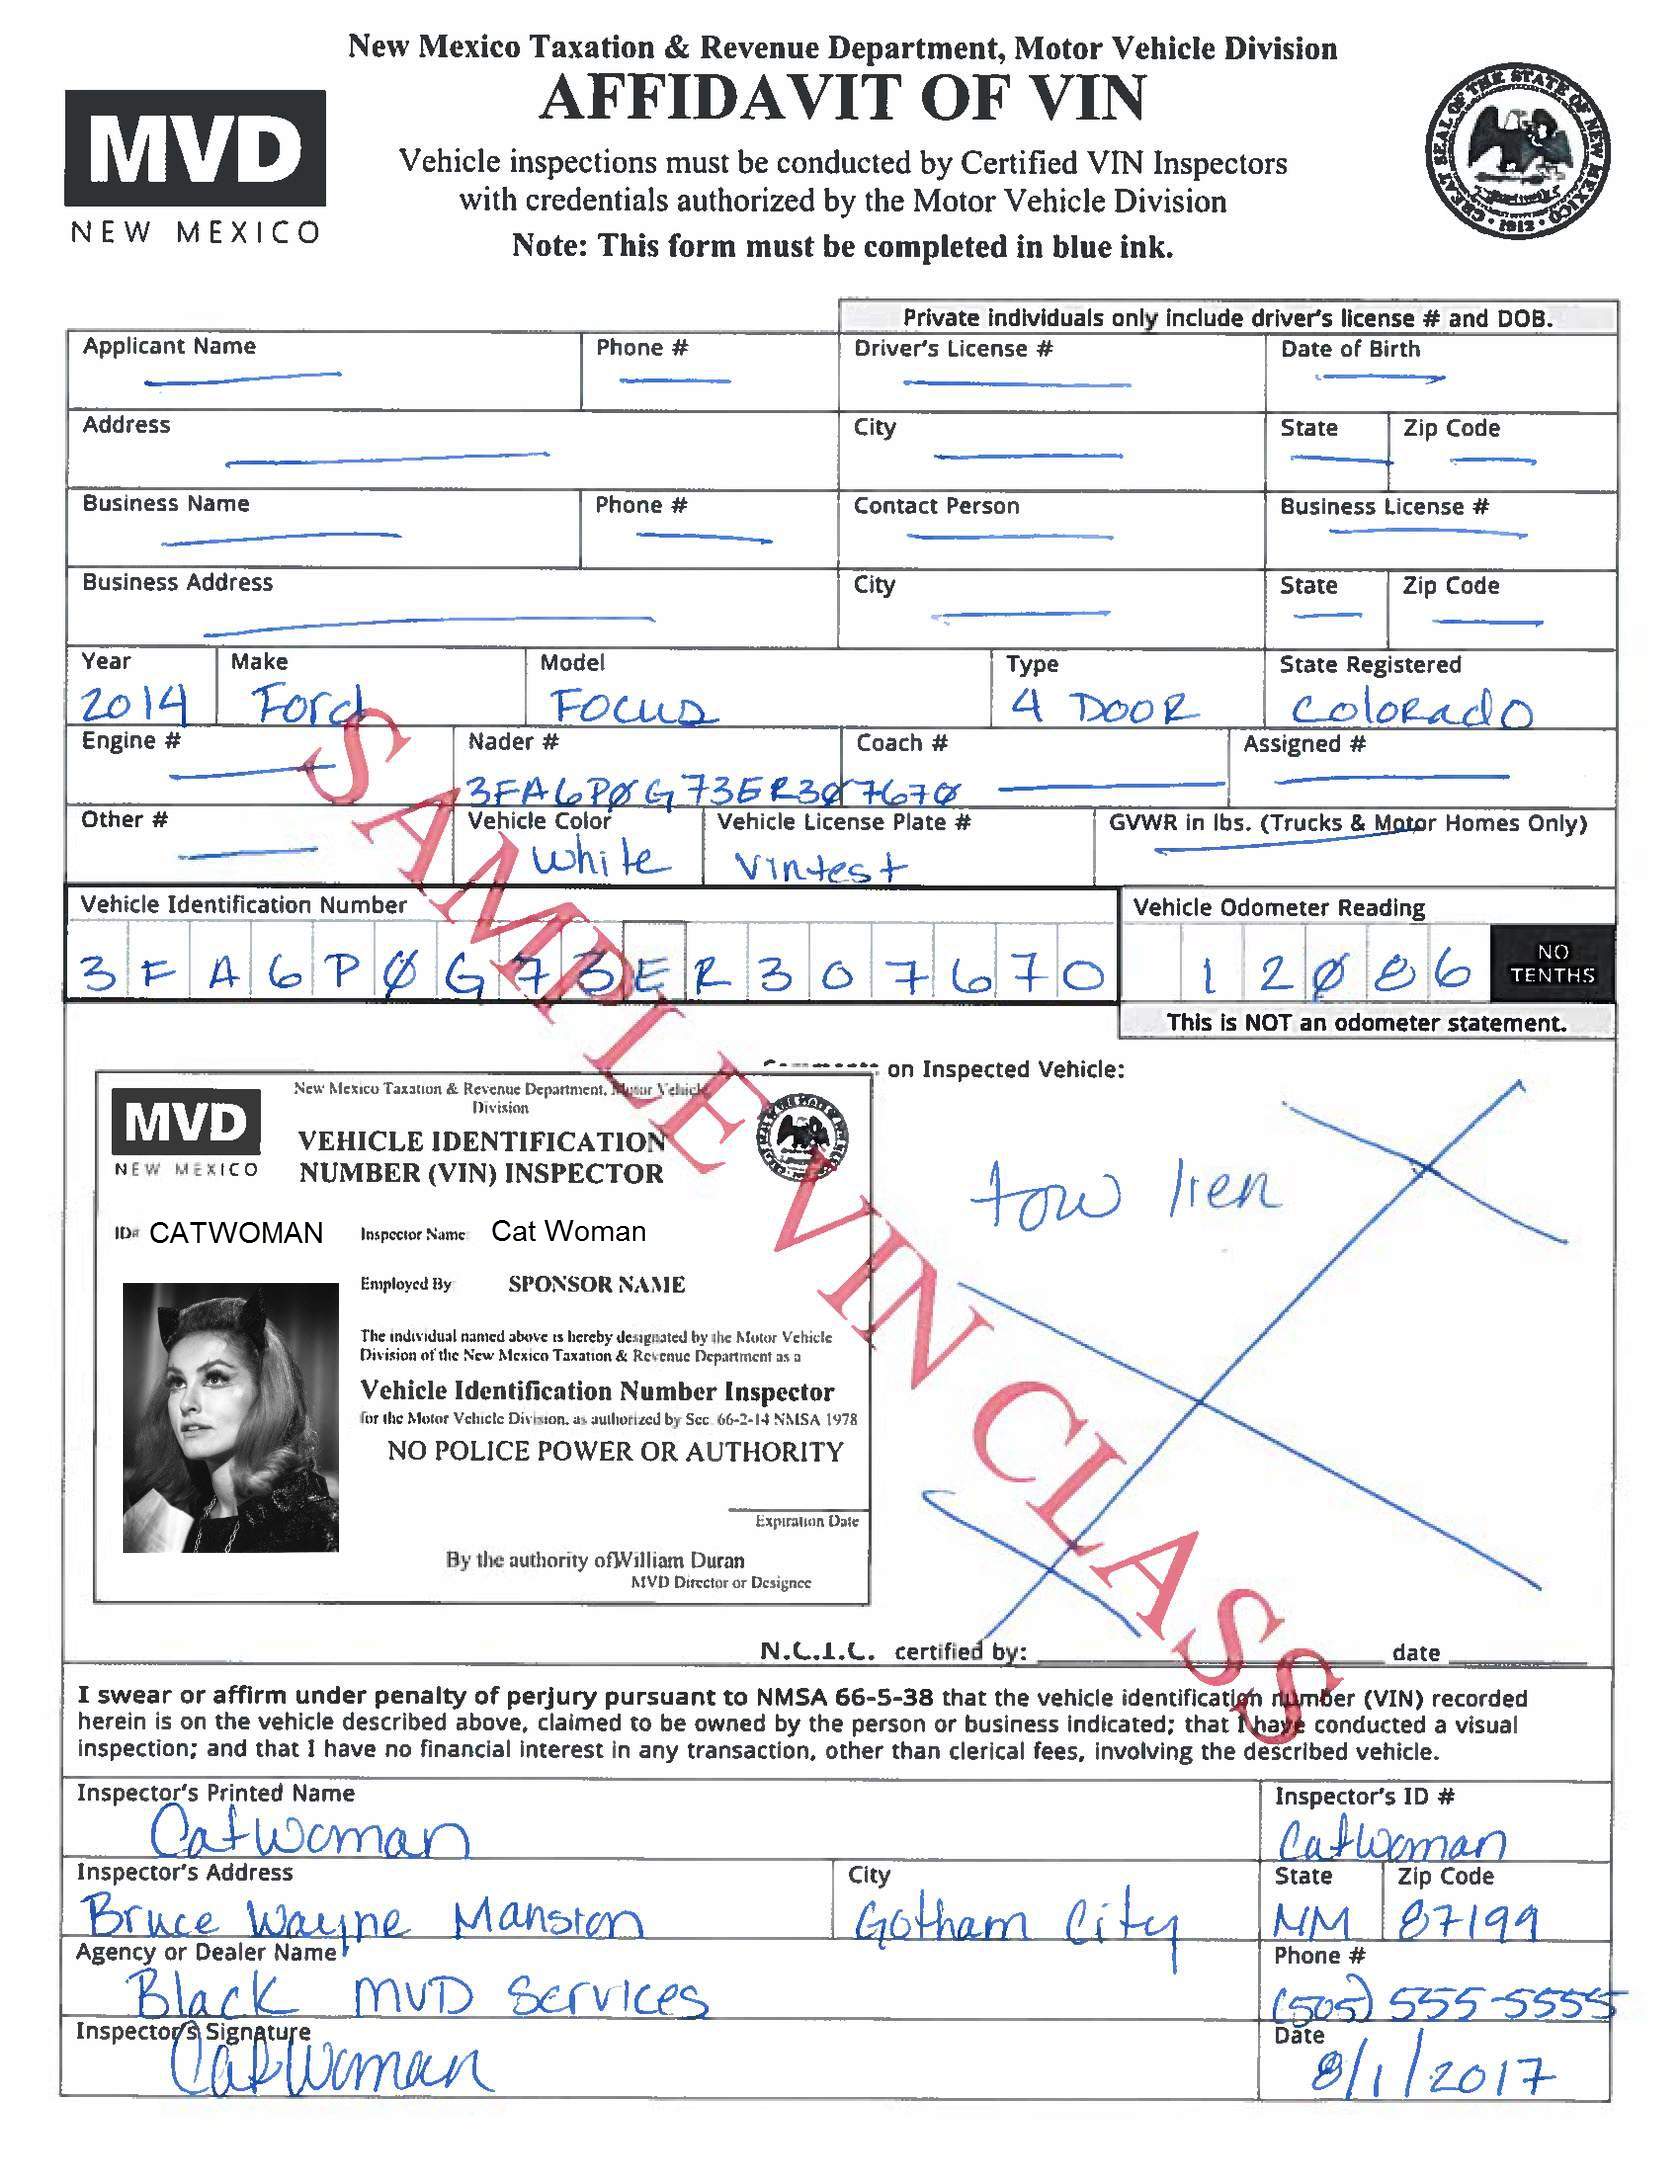 New Mexico Taxation & Revenue Department, Motor Vehicle Division
AFFIDAVIT OF VIN
MVD
NEW MEXICO
Vehicle inspections must be conducted by Certified VIN Inspectors
with credentials authorized by the Motor Vehicle Division
Note: This form must be completed in blue ink.
GREAT SEAL OF THE STATE OF NEW MEXICO
1912
Private individuals only include driver's license # and DOB.
Applicant Name Phone # Driver's License # Date of Birth
Address City State Zip Code
Business Name Phone # Contact Person Business License #
Business Address City State Zip Code
Year Make Model Type State Registered
2014 Ford Focus 4 DOOR Colorado
Engine # Nader # Coach # Assigned #
3FA6P0G73ER307670
Other # Vehicle Color Vehicle License Plate # GVWR in lbs. (Trucks & Motor Homes Only)
White Vintest
Vehicle Identification Number Vehicle Odometer Reading
3FA6P0G73ER307670 12086 NO TENTHS
This is NOT an odometer statement.
on Inspected Vehicle:
tow lien
MVD
NEW MEXICO
New Mexico Taxation & Revenue Department, Motor Vehicle
Division
VEHICLE IDENTIFICATION
NUMBER (VIN) INSPECTOR
ID# CATWOMAN Inspector Name Cat Woman
Employed By SPONSOR NAME
The individual named above is hereby designated by the Motor Vehicle
Division of the New Mexico Taxation & Revenue Department as a
Vehicle Identification Number Inspector
for the Motor Vehicle Division, as authorized by Sec. 66-2-14 NMSA 1978
NO POLICE POWER OR AUTHORITY
Expiration Date
By the authority of William Duran
MVD Director or Designee
N.C.I.C. certified by: date
SAMPLE VIN CLASS
I swear or affirm under penalty of perjury pursuant to NMSA 66-5-38 that the vehicle identification number (VIN) recorded
herein is on the vehicle described above, claimed to be owned by the person or business indicated; that I have conducted a visual
inspection; and that I have no financial interest in any transaction, other than clerical fees, involving the described vehicle.
Inspector's Printed Name Inspector's ID #
Catwoman Catwoman
Inspector's Address City State Zip Code
Bruce Wayne Mansion Gotham City NM 87199
Agency or Dealer Name Phone #
Black MVD Services (505) 555-5555
Inspector's Signature Date
Catwoman 8/1/2017